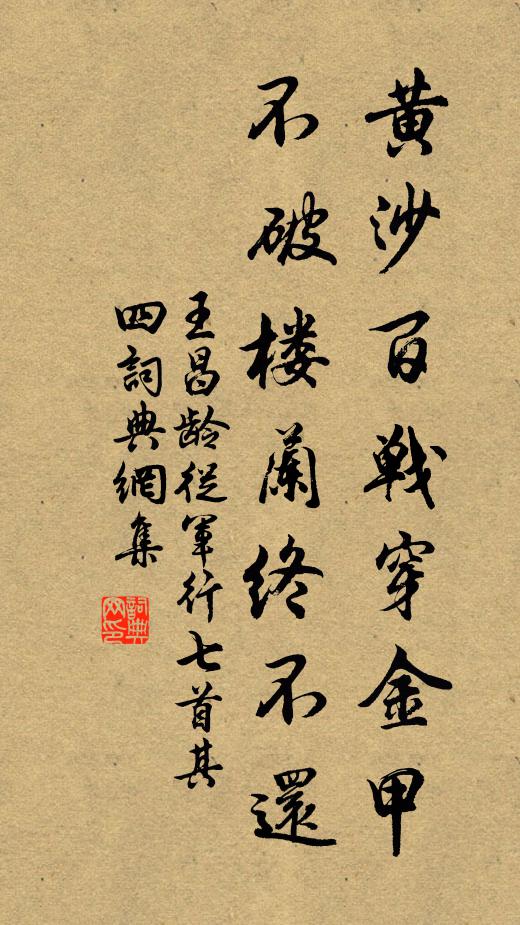 黄沙百戦穿金甲
不破楼蘭終不還
王昌龄従軍行七首其
四詞典網集
詞典
网印